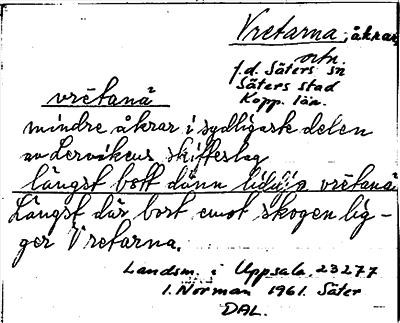 Vretarna, åkrar,
ortn.
f.d. Säters sn
Säters stad
Kopp. län.
vrētanā
mindre åkrar i sydligaste delen
av Lervikens skifteslag
längst bott dänn vrētanā
Längst där bort emot skogen lig-
ger Vretarna.
Landsm. i Uppsala, 23277
I. Norman 1961. Säter
DAL.